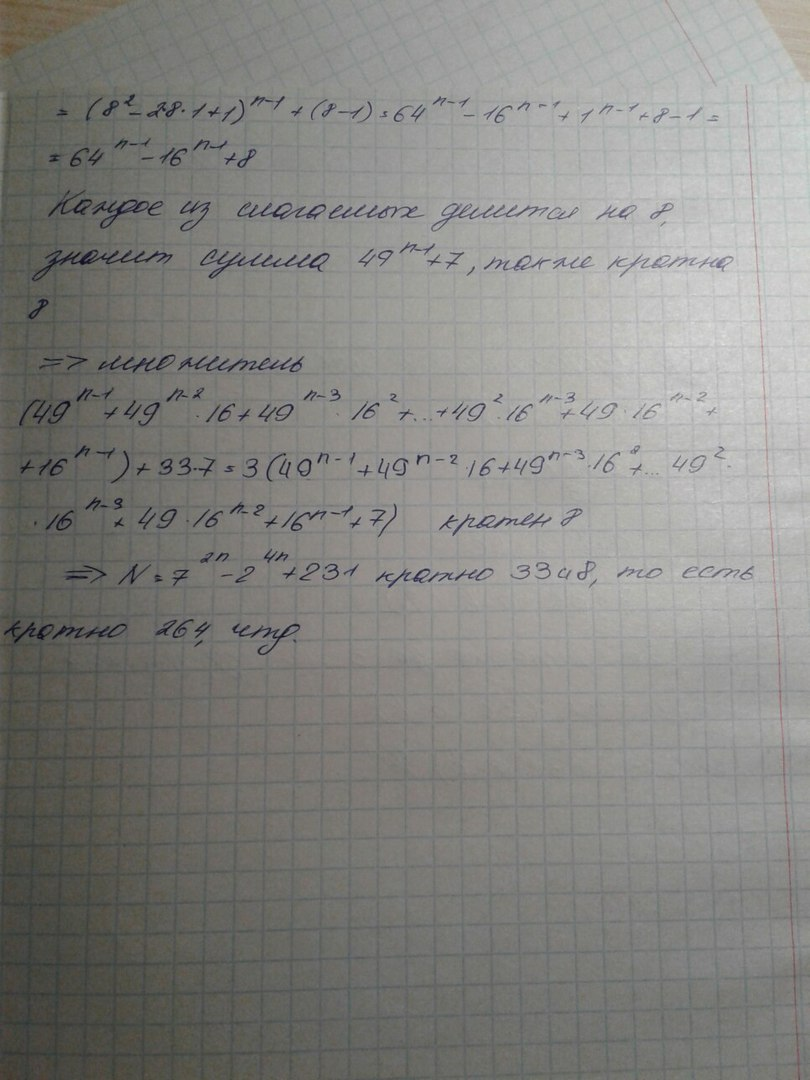 = (8²-28·1+1)ⁿ⁻¹+(8-1)=64ⁿ⁻¹-16ⁿ⁻¹+1ⁿ⁻¹+8-1=
=64ⁿ⁻¹-16ⁿ⁻¹+8
Каждое из слагаемых делится на 8,
значит сумма 49ⁿ⁻¹+7, также кратна
8
=> множитель
(49ⁿ⁻¹+49ⁿ⁻²·16+49ⁿ⁻³·16²+...+49²·16ⁿ⁻³+49·16ⁿ⁻²+
+16ⁿ⁻¹)+33·7=3(49ⁿ⁻¹+49ⁿ⁻²·16+49ⁿ⁻³·16⁸+... 49²·
·16ⁿ⁻³+49·16ⁿ⁻²+16ⁿ⁻¹+7) кратен 8
=> N=7²ⁿ-2⁴ⁿ+231 кратно 33и8, то есть
кратно 264, чтд.